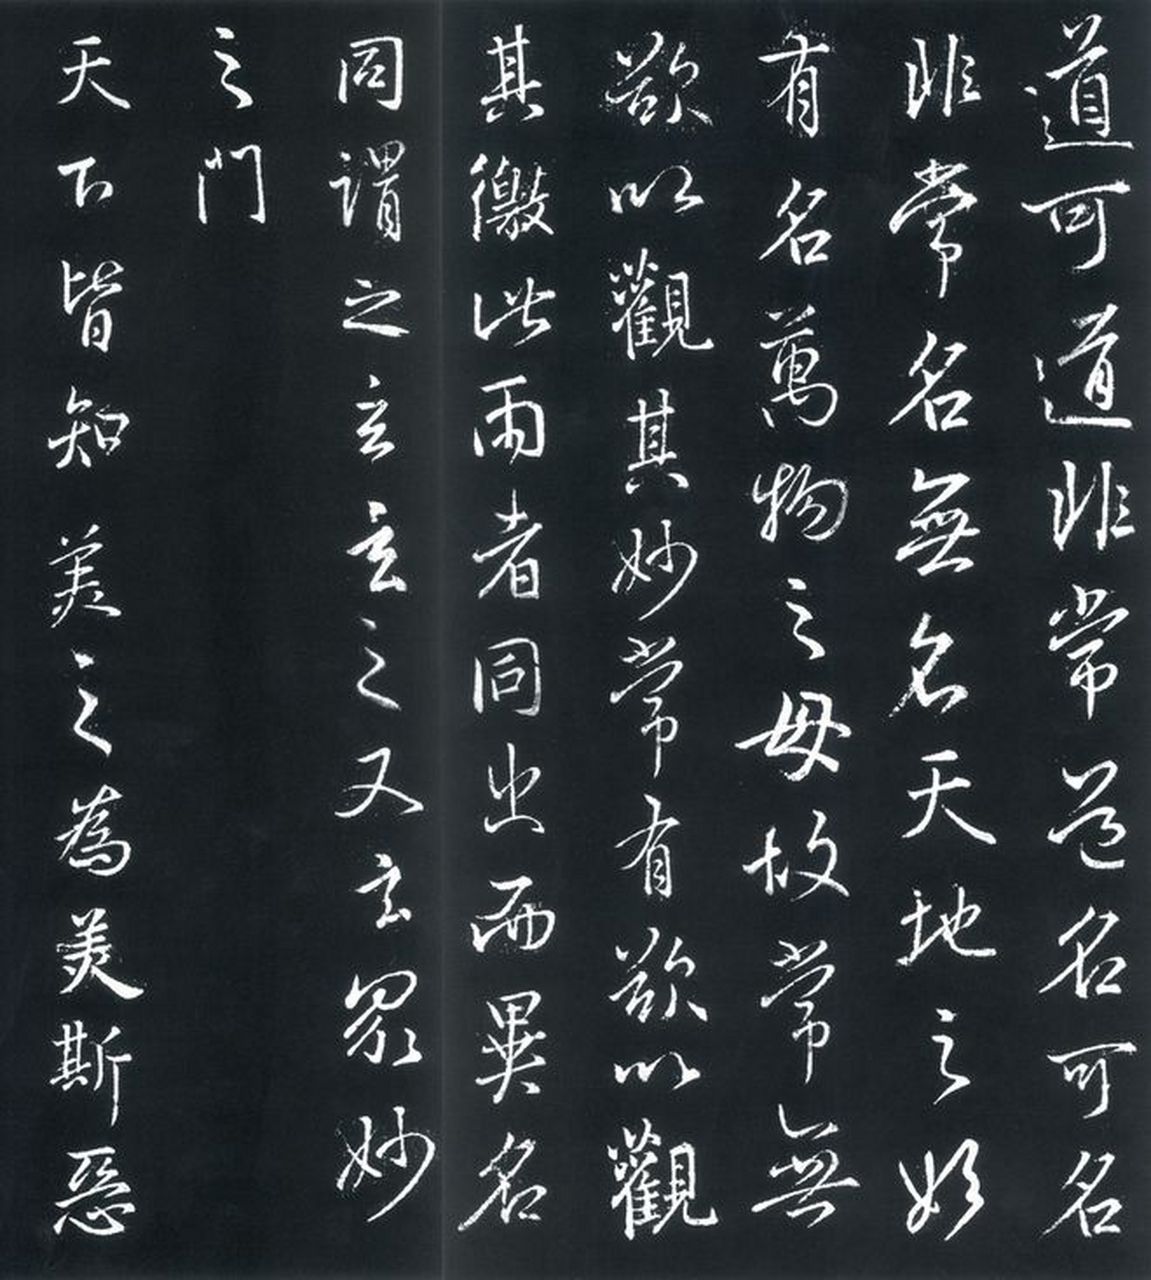 道可道非常道名可名
非常名無名天地之始
有名萬物之母故常無
欲以觀其妙常有欲以觀
其徼此兩者同出而異名
同謂之玄玄之又玄眾妙
之門
天下皆知美之為美斯惡